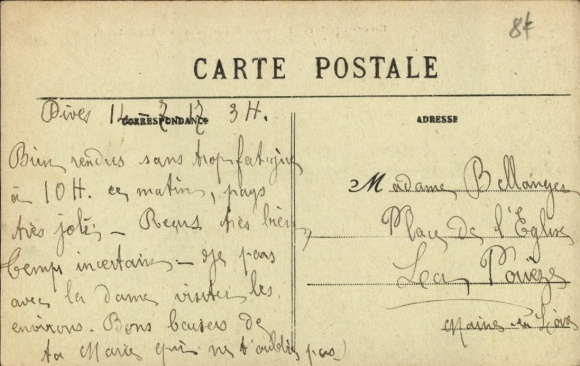 8f
CARTE POSTALE
CORRESPONDANCE
ADRESSE
Dives 14 - 7 17 3 H.
Bien rendues sans trop fatigue
à 10 H. ce matin, pays
très joli - Reçus très bien,
temps incertain - Je pars
avec la dame visiter les
environs. Bons baisers de
ta Marie qui ne t'oublie pas)
Madame Bellanger
Place de l'Eglise
La Pouëze
Maine-et-Loire